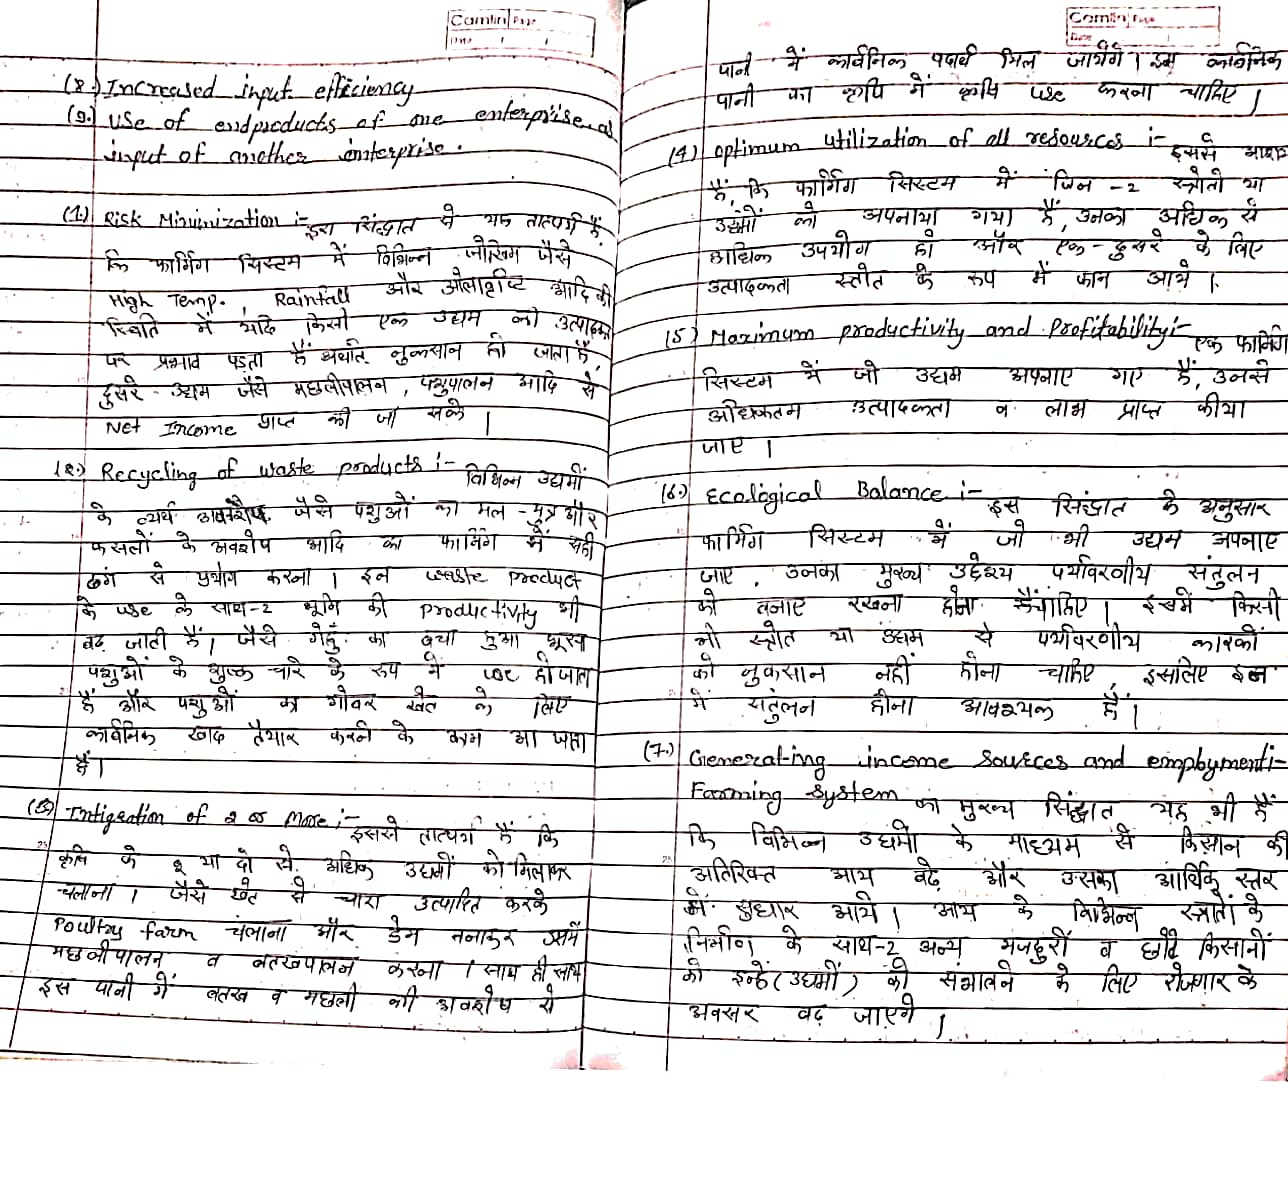 Camlin Page
Date / /
(8.) Increased input efficiency
(9.) Use of endproducts of one enterprise as
input of another enterprise.
(1.) Risk Minimization :- इस सिंद्वात से यह तात्पर्य हैं,
कि फार्मिग सिस्टम में विभिन्न जोखिम जैसे
High Temp., Rainfall और ओलावृष्टि आदि की
स्थिति में यदि किसी एक उद्यम की उत्पादकता
पर प्रभाव पड़ता हैं अर्थात् नुकसान हो जाता हैं,
दुसरे उद्यम जैसे मछलीपालन, पशुपालन आदि से
Net Income प्राप्त की जा सके |
(2.) Recycling of waste products :- विभिन्न उद्यमों
के व्यर्थ अवशेष जैसे पशुओं का मल-मुत्र और
फसलों के अवशेष आदि का फार्मिग में सही
ढंग से प्रयोग करना | इन waste product
के use के साथ-2 भूमि की productivity भी
बढ़ जाती हैं | जैसे गेहूँ का बचा हुआ भूसा
पशुओं के शुष्क चारे के रूप में use हो जाता
हैं और पशुओं का गोबर खेत के लिए
कार्बनिक खाद तैयार करने के काम आ जाता
हैं |
(3.) Intigration of 2 or More :- इससे तात्पर्य हैं कि
कृषि के 2 या दो से अधिक उद्यमों को मिलाकर
चलाना | जैसे खेत से चारा उत्पादित करके
Poultry farm चलाना और डेम बनाकर उसमें
मछलीपालन व बतखपालन करना | साथ ही साथ
इस पानी में बतख व मछली की अवशेष से
Camlin Page
Date
पानी में कार्बनिक पदार्थ मिल जायेंगे | इस कार्बनिक
पानी का कृषि में कृषि use करना चाहिए |
(4) Optimum utilization of all resources :- इससे आशय
हैं, कि फार्मिग सिस्टम में जिन-2 स्त्रोतो या
उद्यमों को अपनाया गया हैं, उनका अधिक से
अधिक उपयोग हो और एक-दुसरे के लिए
उत्पादकता स्त्रोत के रूप में काम आये |
(5) Maximum productivity and Profitability :- एक फार्मिग
सिस्टम में जो उद्यम अपनाए गए हैं, उनसे
अधिकतम उत्पादकता व लाभ प्राप्त कीया
जाए |
(6.) Ecological Balance :- इस सिंद्वात के अनुसार
फार्मिग सिस्टम में जो भी उद्यम अपनाए
जाए, उनका मुख्य उद्देश्य पर्यावरणीय संतुलन
को बनाए रखना होना चाहिए | इसमें किसी
भी स्त्रोत या उद्यम से पर्यावरणीय कारकों
को नुकसान नहीं होना चाहिए, इसलिए इन
में संतुलन होना आवश्यक हैं |
(7.) Generat-ing income sources and employment :-
Farming System का मुख्य सिंद्वात यह भी हैं
कि विभिन्न उद्यमो के माध्यम से किसान की
अतिरिक्त आय बढ़े और उसका आर्थिक स्तर
में सुधार आये | आय के विभिन्न स्त्रोतों के
निर्माण के साथ-2 अन्य मजदुरों व छोटे किसानों
को इन्हें (उद्यमों) को संभालने के लिए रोजगार के
अवसर बढ़ जाएगे |